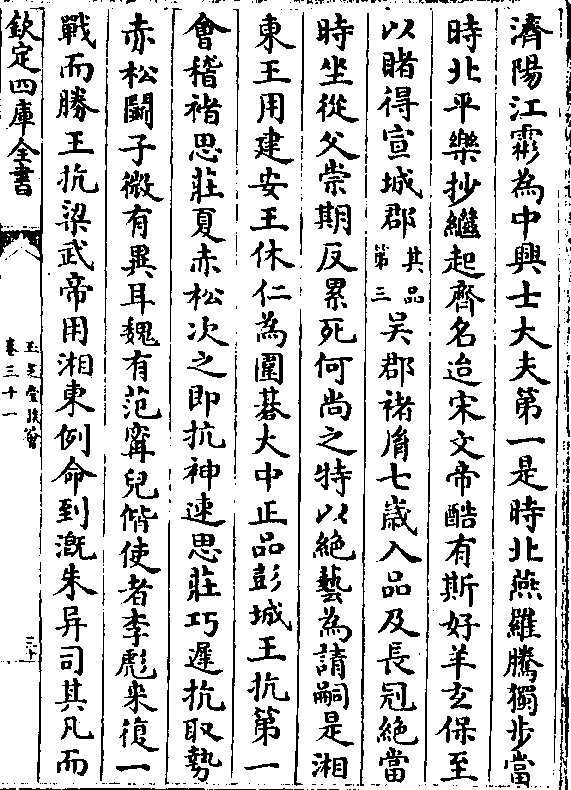 濟陽江霦為中興士大夫第一是時北燕羅騰獨步當
時北平樂抄繼起齊名迨宋文帝酷有斯好羊玄保至
以賭得宣城郡其品第三吳郡褚𦙍七歲入品及長冠絶當
時坐從父崇期反累死何尚之特以絶藝為請嗣是湘
東王用建安王休仁為圍碁大中正品彭城王抗第一
會稽褚思莊夏赤松次之即抗神速思莊巧遲抗取勢
赤松鬭子微有異耳魏有范甯兒偕使者李彪来復一
戰而勝王抗梁武帝用湘東例命到溉朱异司其凡而
欽定四庫全書
玉芝堂談薈
卷三十一
三十